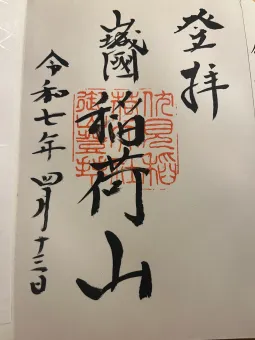 登拝
山城國
稲荷山
令和七年 四月十三日